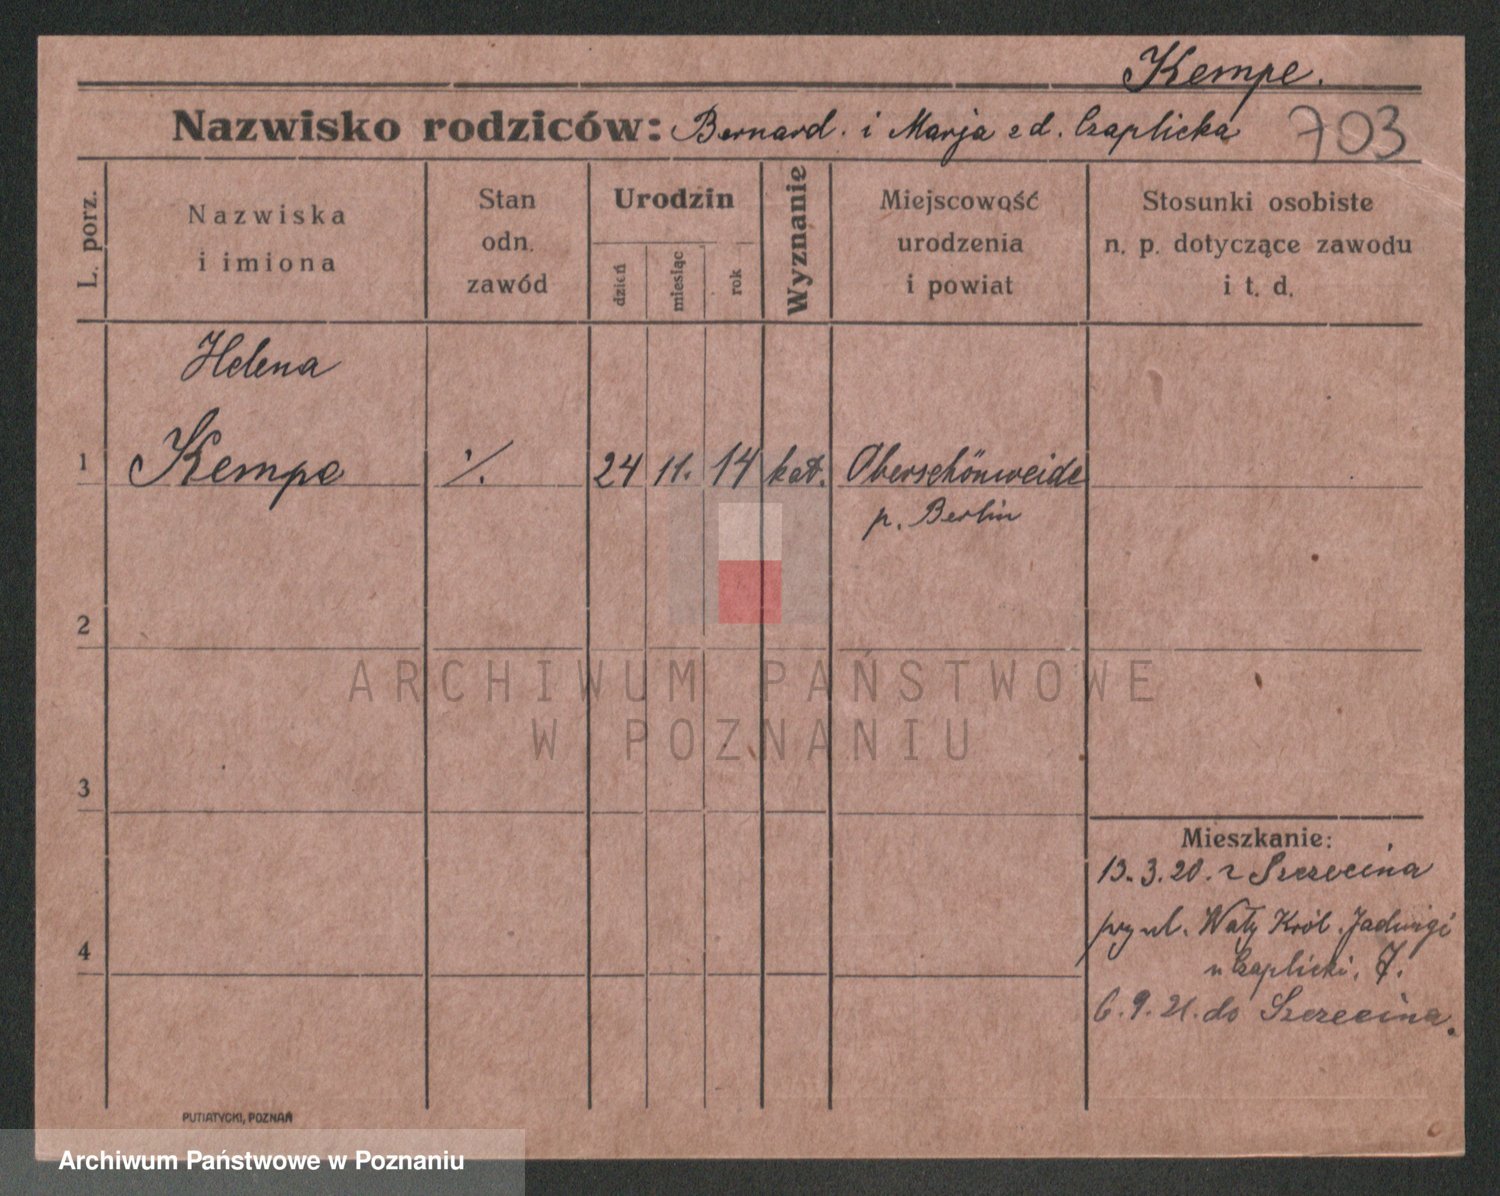 Kempe.
Nazwisko rodziców: Bernard. i Marja z d. Czaplicka
703
L. porz.
Nazwiska
i imiona
Stan
odn.
zawód
Urodzin
dzień
miesiąc
rok
Wyznanie
Miejscowość
urodzenia
i powiat
Stosunki osobiste
n. p. dotyczące zawodu
i t. d.
Helena
1 Kempe ·/. 24 11. 14 kat. Oberschönweide
p. Berlin
2
ARCHIWUM PAŃSTWOWE
W POZNANIU
3
Mieszkanie:
13.3.20. z Szczecina
przy ul. Wały Król. Jadwigi
4
u Czaplicki. 7.
6.9.21. do Szczecina.
PUTIATYCKI, POZNAŃ
Archiwum Państwowe w Poznaniu